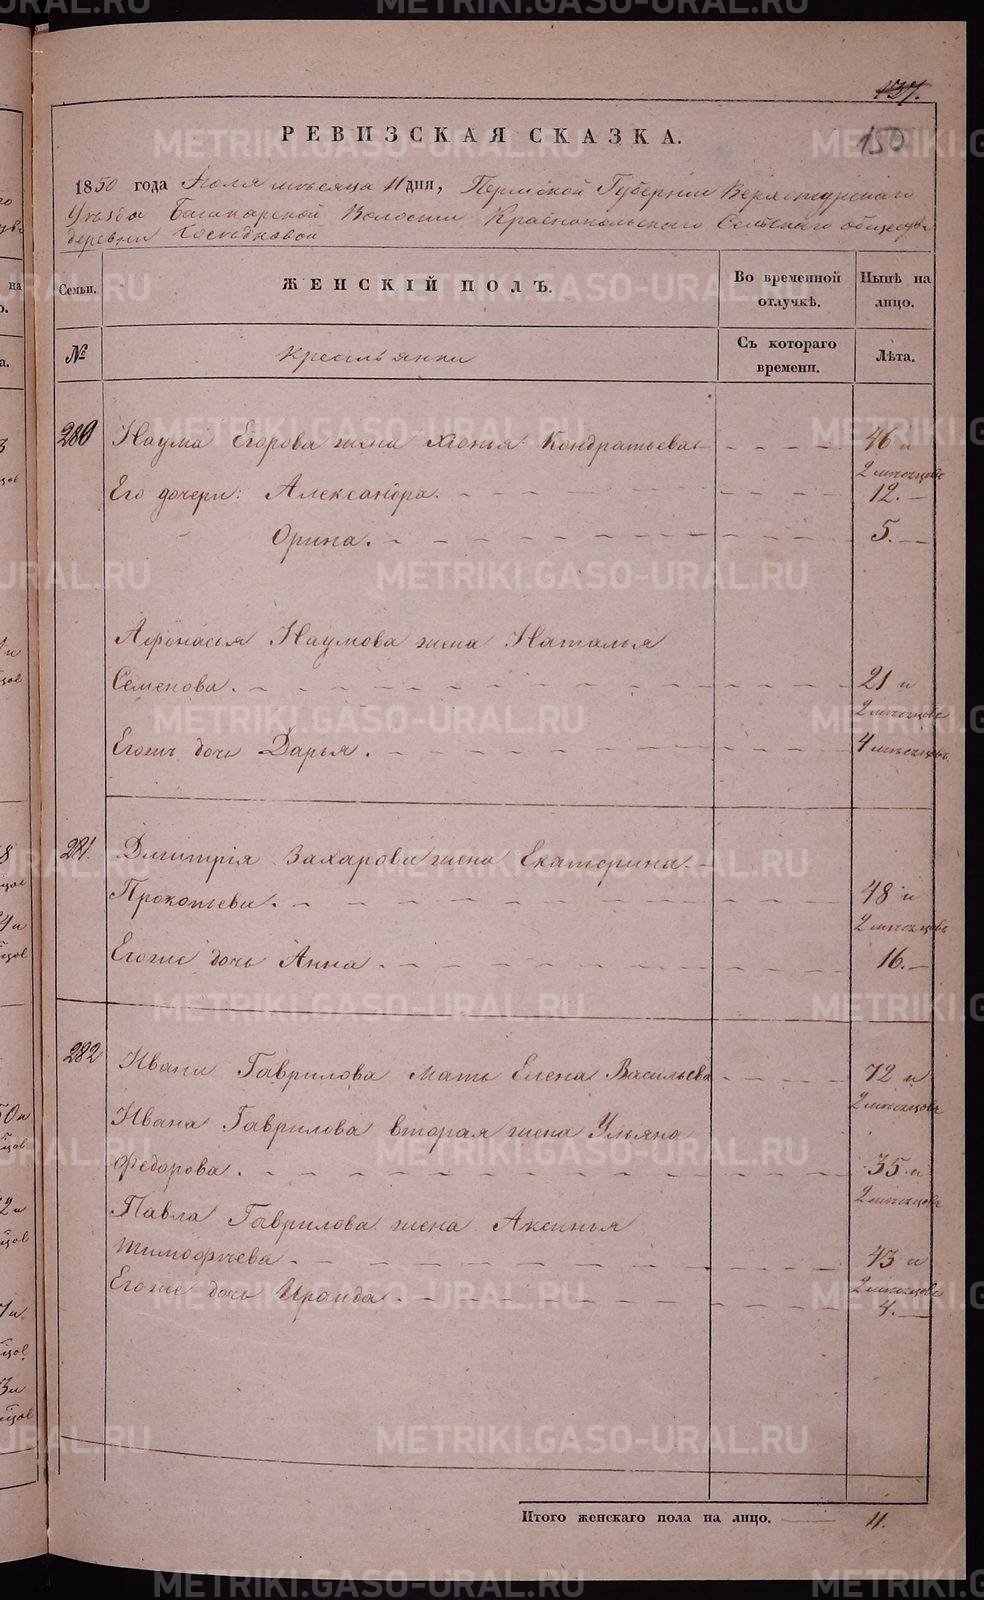 137.
150
РЕВИЗСКАЯ СКАЗКА.
1850 года Іюля мѣсяца 11 дня, Пермской Губерніи Верхотурскаго
Уѣзда Башкарской Волости Краснопольскаго Сельскаго общества
деревни
Семьи. ЖЕНСКІЙ ПОЛЪ. Во временной отлучкѣ. Нынѣ на лицо.
№ Крестьянки Съ котораго времени. Лѣта.
280 Наума Егорова жена Хіонья Кондратьева 46 и
2 мѣсяцовъ
Его дочери: Александра. 12.
Орина. 5.
Афонасья Наумова жена Наталья
Семенова. 21 и
2 мѣсяцовъ
Егожъ дочь Дарья. 4 мѣсяцовъ.
281. Дмитрія Захарова жена Екатерина
Прокопьева. 48 и
2 мѣсяцовъ
Егоже дочь Анна. 16.
282 Ивана Гаврилова мать Елена Васильева 72 и
2 мѣсяцовъ
Ивана Гаврилова вторая жена Ульяна
Федорова. 35 и
2 мѣсяцовъ
Павла Гаврилова жена Аксинья
Тимофѣева. 43 и
2 мѣсяцовъ
Егоже дочь Ираида. 4.
Итого женскаго пола на лицо. 11.
METRIKI.GASO-URAL.RU